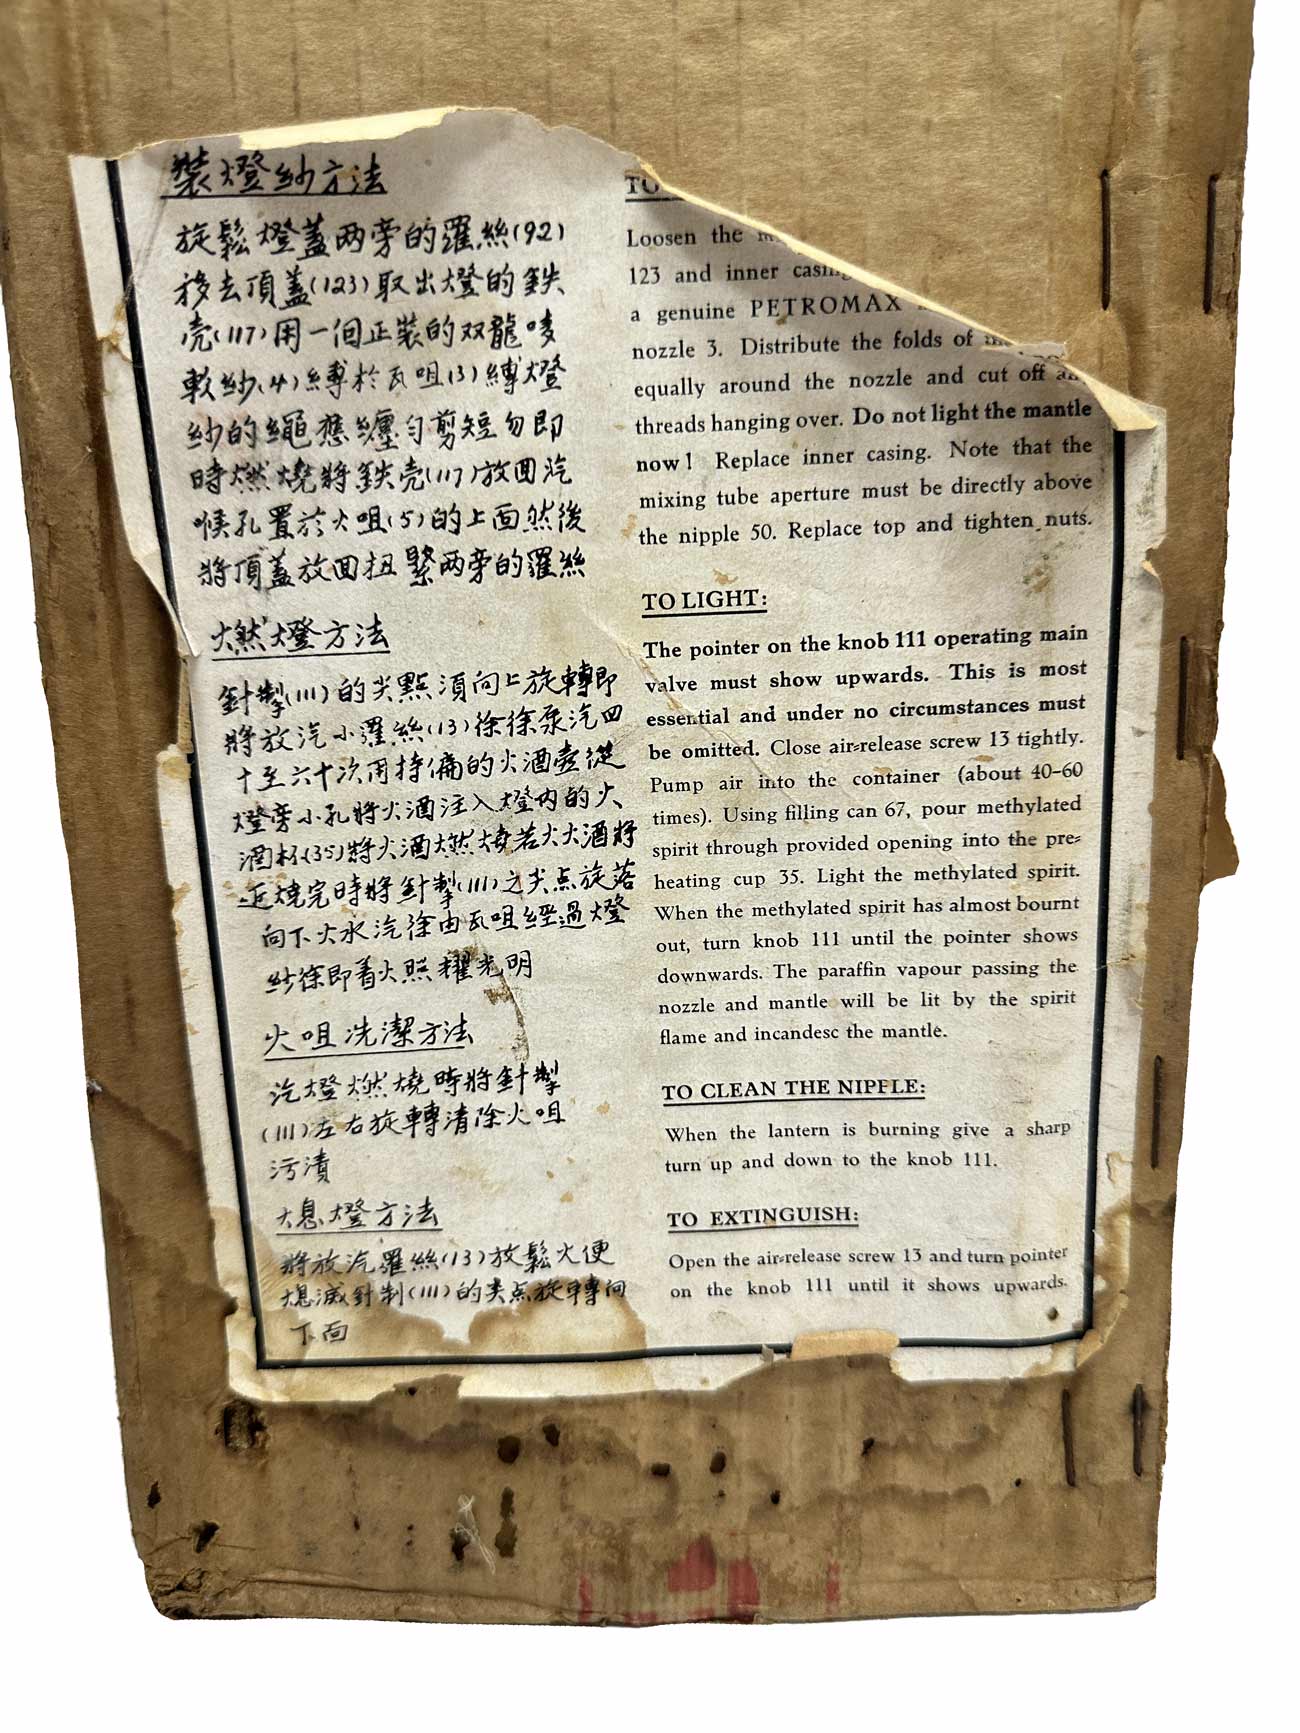 裝燈紗方法
旋鬆燈蓋两旁的羅絲(92)
移去頂蓋(123)取出燈的鉄
壳(117)用一個正裝的双龍唛
軟紗(4)縛於瓦咀(3)縛燈
紗的繩應纏匀剪短勿即
時燃燒將鉄壳(117)放囬汽
喉孔置於火咀(5)的上面然後
將頂蓋放囬扭緊两旁的羅絲
燃燈方法
針掣(111)的尖點須向上旋轉即
將放汽小羅絲(13)徐徐泵汽四
十至六十次用特備的火酒壺從
燈旁小孔將火酒注入燈内的火
酒杯(35)將火酒燃燒若火酒將
近燒完時將針掣(111)之尖点旋落
向下火水汽徐由瓦咀經過燈
紗徐即着火照耀光明
火咀洗潔方法
汽燈燃燒時將針掣
(111)左右旋轉清除火咀
污漬
熄燈方法
將放汽羅絲(13)放鬆火便
熄滅針制(111)的尖点旋轉向
下面
TO
Loosen the
123 and inner casing
a genuine PETROMAX
nozzle 3. Distribute the folds of
equally around the nozzle and cut off any
threads hanging over. Do not light the mantle
now! Replace inner casing. Note that the
mixing tube aperture must be directly above
the nipple 50. Replace top and tighten nuts.
TO LIGHT:
The pointer on the knob 111 operating main
valve must show upwards. This is most
essential and under no circumstances must
be omitted. Close air=release screw 13 tightly.
Pump air into the container (about 40-60
times). Using filling can 67, pour methylated
spirit through provided opening into the pre=
heating cup 35. Light the methylated spirit.
When the methylated spirit has almost bournt
out, turn knob 111 until the pointer shows
downwards. The paraffin vapour passing the
nozzle and mantle will be lit by the spirit
flame and incandesc the mantle.
TO CLEAN THE NIPFLE:
When the lantern is burning give a sharp
turn up and down to the knob 111.
TO EXTINGUISH:
Open the air=release screw 13 and turn pointer
on the knob 111 until it shows upwards.